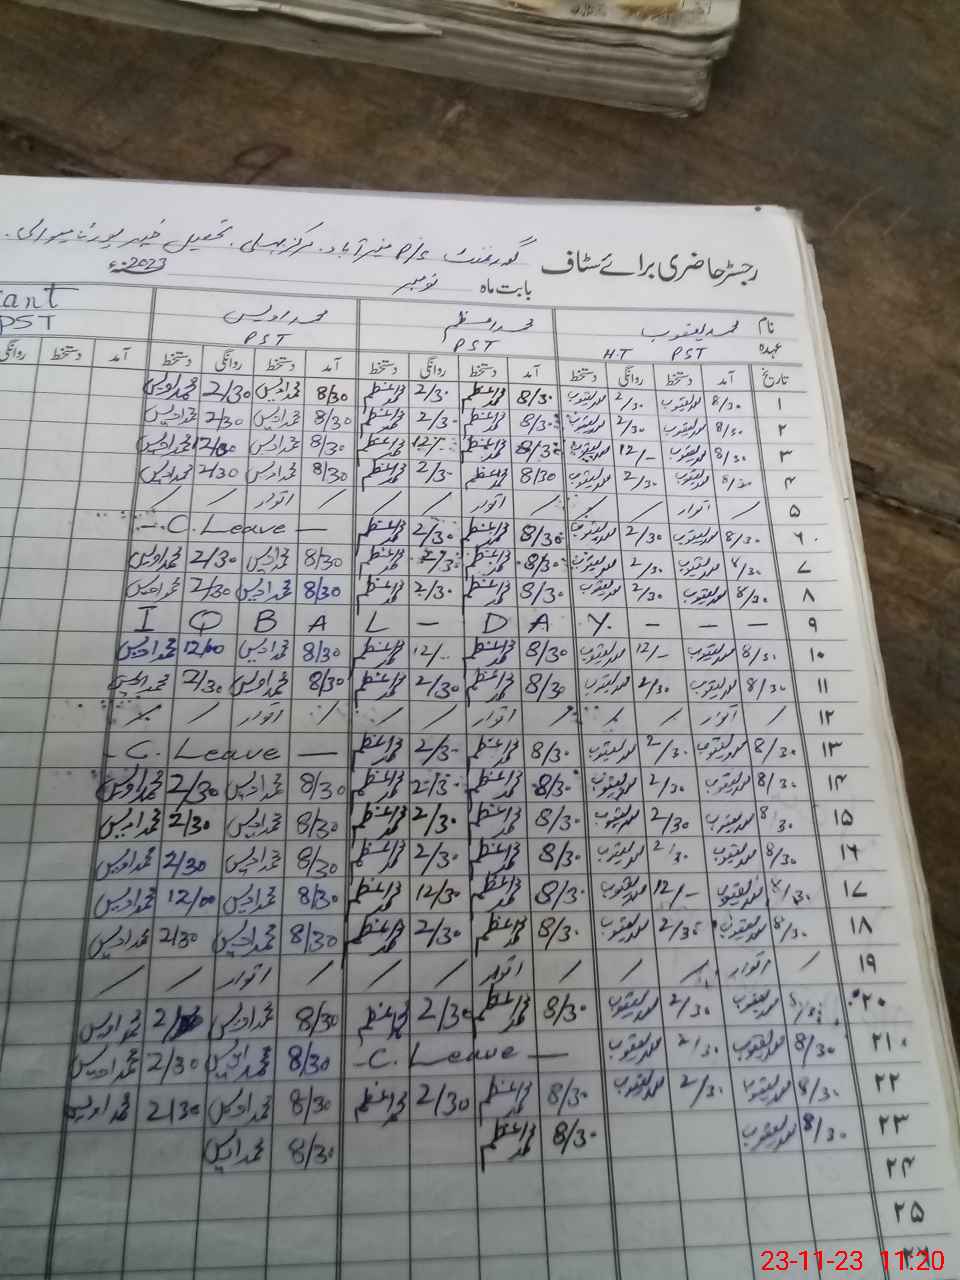 رجسٹر حاضری برائے سٹاف گورنمنٹ P/S منیر آباد۔ مرکز ببرلی۔ تحصیل خیرپور ٹامیوالی۔
بابت ماہ نومبر 2023ء
نام محمد یعقوب محمد اعظم محمد اویس cant
عہدہ PST H.T PST PST PST
تاریخ آمد دستخط روانگی دستخط آمد دستخط روانگی دستخط آمد دستخط روانگی دستخط آمد دستخط روانگی
۱ 8/30 محمد یعقوب 2/30 محمد یعقوب 8/30 محمد اعظم 2/30 محمد اعظم 8/30 محمد اویس 2/30 محمد اویس
۲ 8/30 محمد یعقوب 2/30 محمد یعقوب 8/30 محمد اعظم 2/30 محمد اعظم 8/30 محمد اویس 2/30 محمد اویس
۳ 8/30 محمد یعقوب 12/- محمد یعقوب 8/30 محمد اعظم 12/- محمد اعظم 8/30 محمد اویس 12/00 محمد اویس
۴ 8/30 محمد یعقوب 2/30 محمد یعقوب 8/30 محمد اعظم 2/30 محمد اعظم 8/30 محمد اویس 2/30 محمد اویس
۵ / اتوار / / / اتوار / / / اتوار / /
۶ 8/30 محمد یعقوب 2/30 محمد یعقوب 8/30 محمد اعظم 2/30 محمد اعظم - C. Leave -
۷ 8/30 محمد یعقوب 2/30 محمد یعقوب 8/30 محمد اعظم 2/30 محمد اعظم 8/30 محمد اویس 2/30 محمد اویس
۸ 8/30 محمد یعقوب 2/30 محمد یعقوب 8/30 محمد اعظم 2/30 محمد اعظم 8/30 محمد اویس 2/30 محمد اویس
۹ I Q B A L - D A Y. - - -
۱۰ 8/30 محمد یعقوب 12/- محمد یعقوب 8/30 محمد اعظم 12/- محمد اعظم 8/30 محمد اویس 12/00 محمد اویس
۱۱ 8/30 محمد یعقوب 2/30 محمد یعقوب 8/30 محمد اعظم 2/30 محمد اعظم 8/30 محمد اویس 2/30 محمد اویس
۱۲ / اتوار / / / اتوار / / / اتوار / /
۱۳ 8/30 محمد یعقوب 2/30 محمد یعقوب 8/30 محمد اعظم 2/30 محمد اعظم - C. Leave -
۱۴ 8/30 محمد یعقوب 2/30 محمد یعقوب 8/30 محمد اعظم 2/30 محمد اعظم 8/30 محمد اویس 2/30 محمد اویس
۱۵ 8/30 محمد یعقوب 2/30 محمد یعقوب 8/30 محمد اعظم 2/30 محمد اعظم 8/30 محمد اویس 2/30 محمد اویس
۱۶ 8/30 محمد یعقوب 2/30 محمد یعقوب 8/30 محمد اعظم 2/30 محمد اعظم 8/30 محمد اویس 2/30 محمد اویس
۱۷ 8/30 محمد یعقوب 12/- محمد یعقوب 8/30 محمد اعظم 12/30 محمد اعظم 8/30 محمد اویس 12/00 محمد اویس
۱۸ 8/30 محمد یعقوب 2/30 محمد یعقوب 8/30 محمد اعظم 2/30 محمد اعظم 8/30 محمد اویس 2/30 محمد اویس
۱۹ / اتوار / / / اتوار / / / اتوار / /
۲۰ 8/30 محمد یعقوب 2/30 محمد یعقوب 8/30 محمد اعظم 2/30 محمد اعظم 8/30 محمد اویس محمد اویس
۲۱ 8/30 محمد یعقوب 2/30 محمد یعقوب - C. Leave - 8/30 محمد اویس 2/30 محمد اویس
۲۲ 8/30 محمد یعقوب 2/30 محمد یعقوب 8/30 محمد اعظم 2/30 محمد اعظم 8/30 محمد اویس 2/30 محمد اویس
۲۳ 8/30 محمد یعقوب 8/30 محمد اعظم 8/30 محمد اویس
۲۴
۲۵
۲۶
23-11-23 11:20